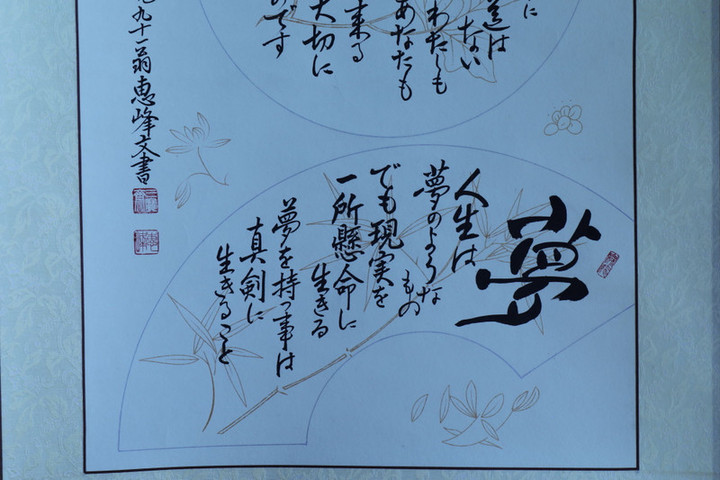 に
道は
ない
わたしも
あなたも
来る
大切に
のです
夢
人生は
夢のような
もの
でも現実を
一所懸命に
生きる
夢を持つ事は
真剣に
生きること
九十一翁恵峰文書